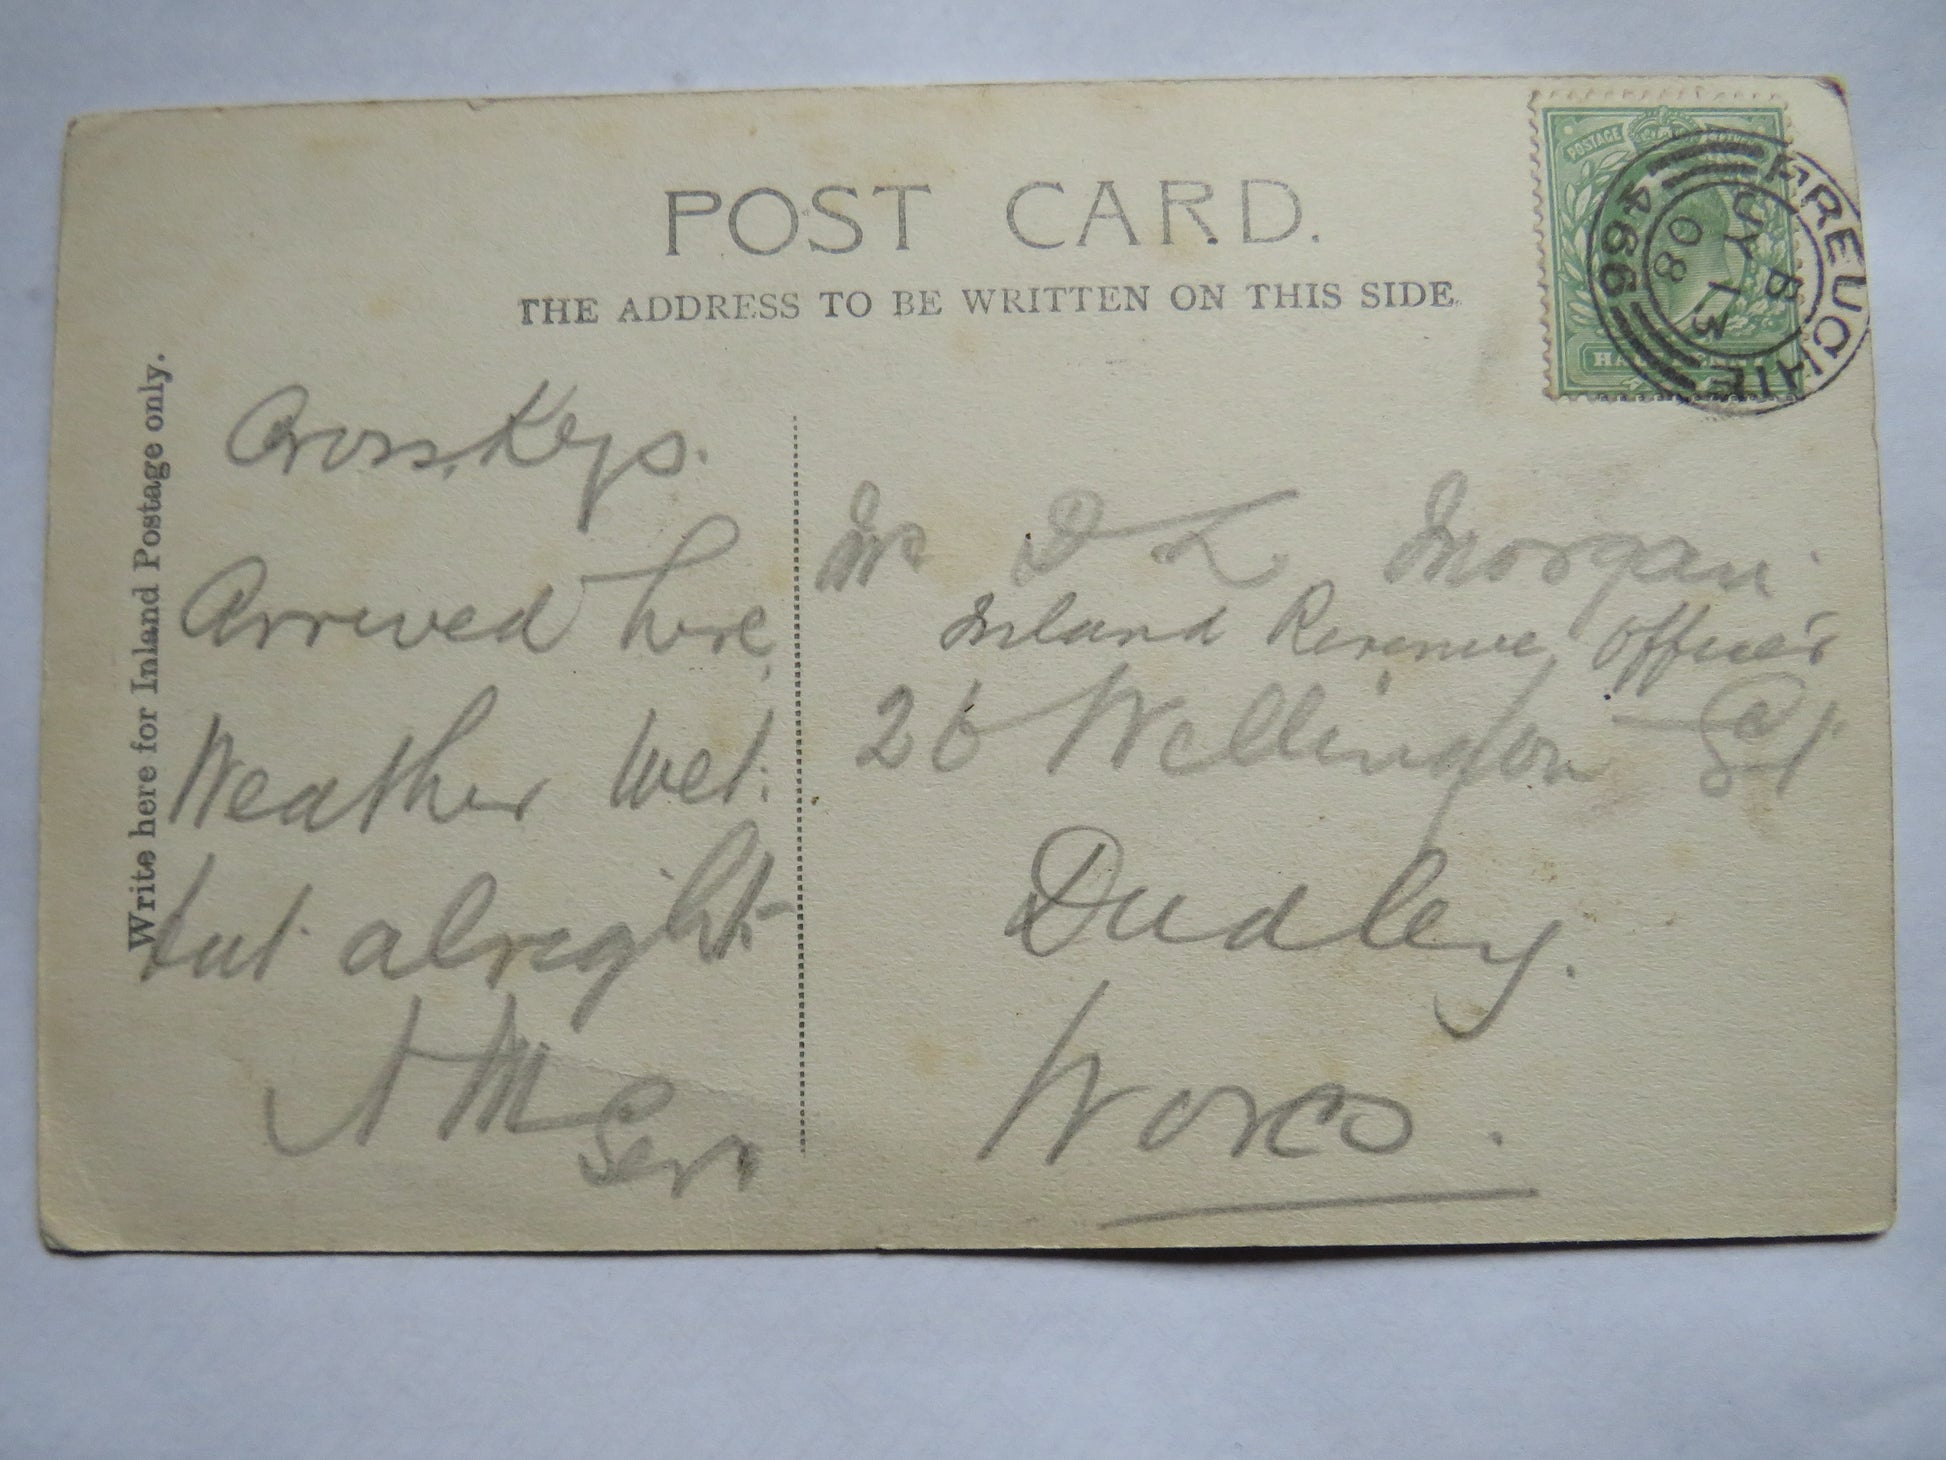 POST CARD.
THE ADDRESS TO BE WRITTEN ON THIS SIDE.
Write here for Inland Postage only.
POSTAGE
FREUCHIE
B
JY 13
08
466
Cross Keys.
Arrived here,
Weather wet.
but alright
Senr
Mr D L Morgan.
Inland Revenue Officer
26 Wellington Rd
Dudley.
Worcs.